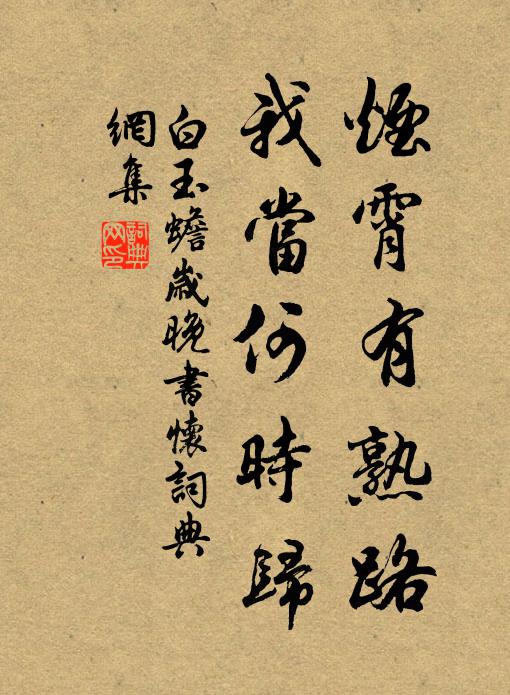 煙霄有熟路
我當何時歸
白玉蟾歲晚書懷詞典
網集
詞典
网印